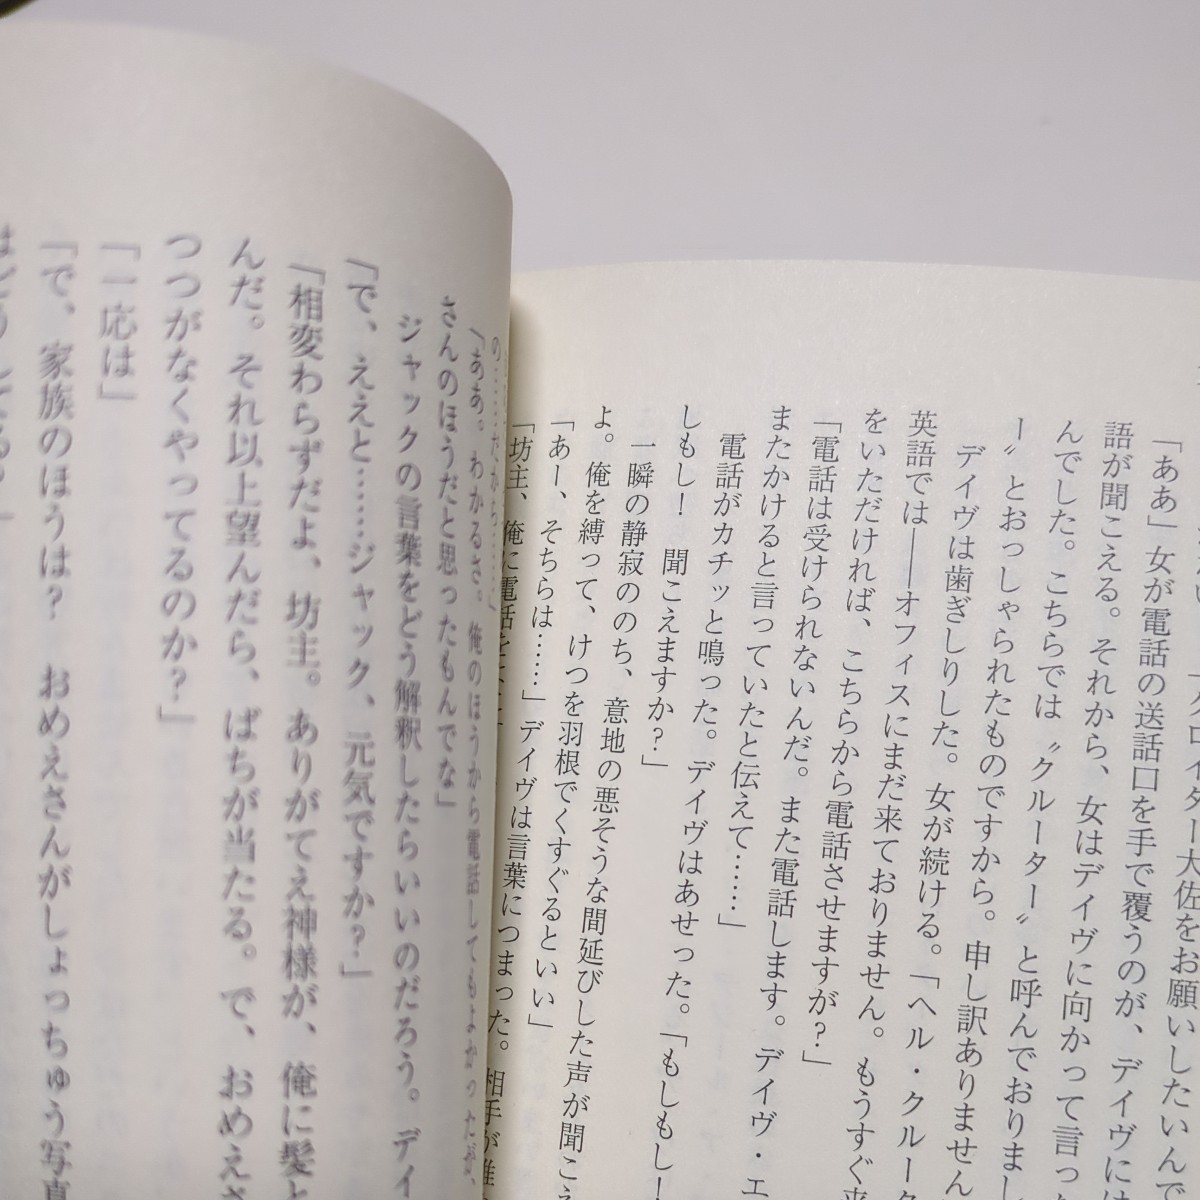 クロイター大佐をお願いしたいんで
「ああ」女が電話の送話口を手で覆うのが、デイヴには
語が聞こえる。それから、女はデイヴに向かって言っ
んでした。こちらでは〝クルーター〟と呼んでおりまし
ー〟とおっしゃられたものですから。申し訳ありません
デイヴは歯ぎしりした。女が続ける。「ヘル・クルータ
英語では――オフィスにまだ来ておりません。もうすぐ来
をいただければ、こちらから電話させますが?」
「電話は受けられないんだ。また電話します。デイヴ・エ
またかけると言っていたと伝えて……」
電話がカチッと鳴った。デイヴはあせった。「もしもし!
しもし! 聞こえますか?」
一瞬の静寂ののち、意地の悪そうな間延びした声が聞こえ
よ。俺を縛って、けつを羽根でくすぐるといい」
「あー、そちらは……」デイヴは言葉につまった。相手が誰
「坊主、俺に電話を
の……だから……」
「ああ。わかるさ。俺のほうから電話してもよかったが、
さんのほうだと思ったもんでな」
ジャックの言葉をどう解釈したらいいのだろう。デイ
「で、ええと……ジャック、元気ですか?」
「相変わらずだよ、坊主。ありがてえ神様が、俺に髪と
んだ。それ以上望んだら、ばちが当たる。で、おめえさ
つつがなくやってるのか?」
「一応は」
「で、家族のほうは? おめえさんがしょっちゅう写真
はどうしてる?」